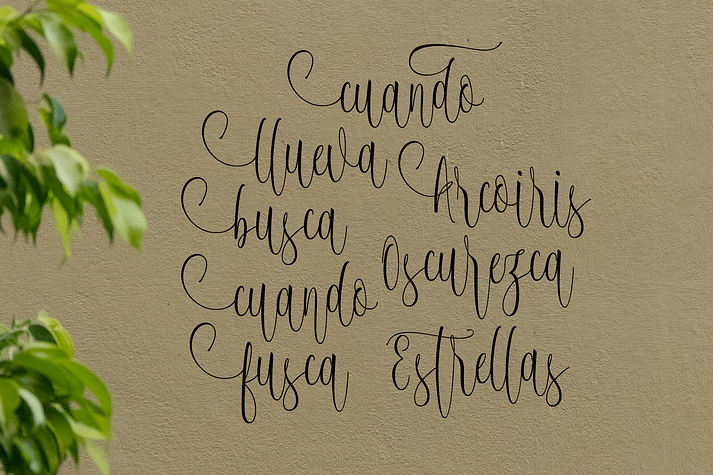 cuando
llueva
busca Arcoiris
cuando Oscurezca
fusca Estrellas